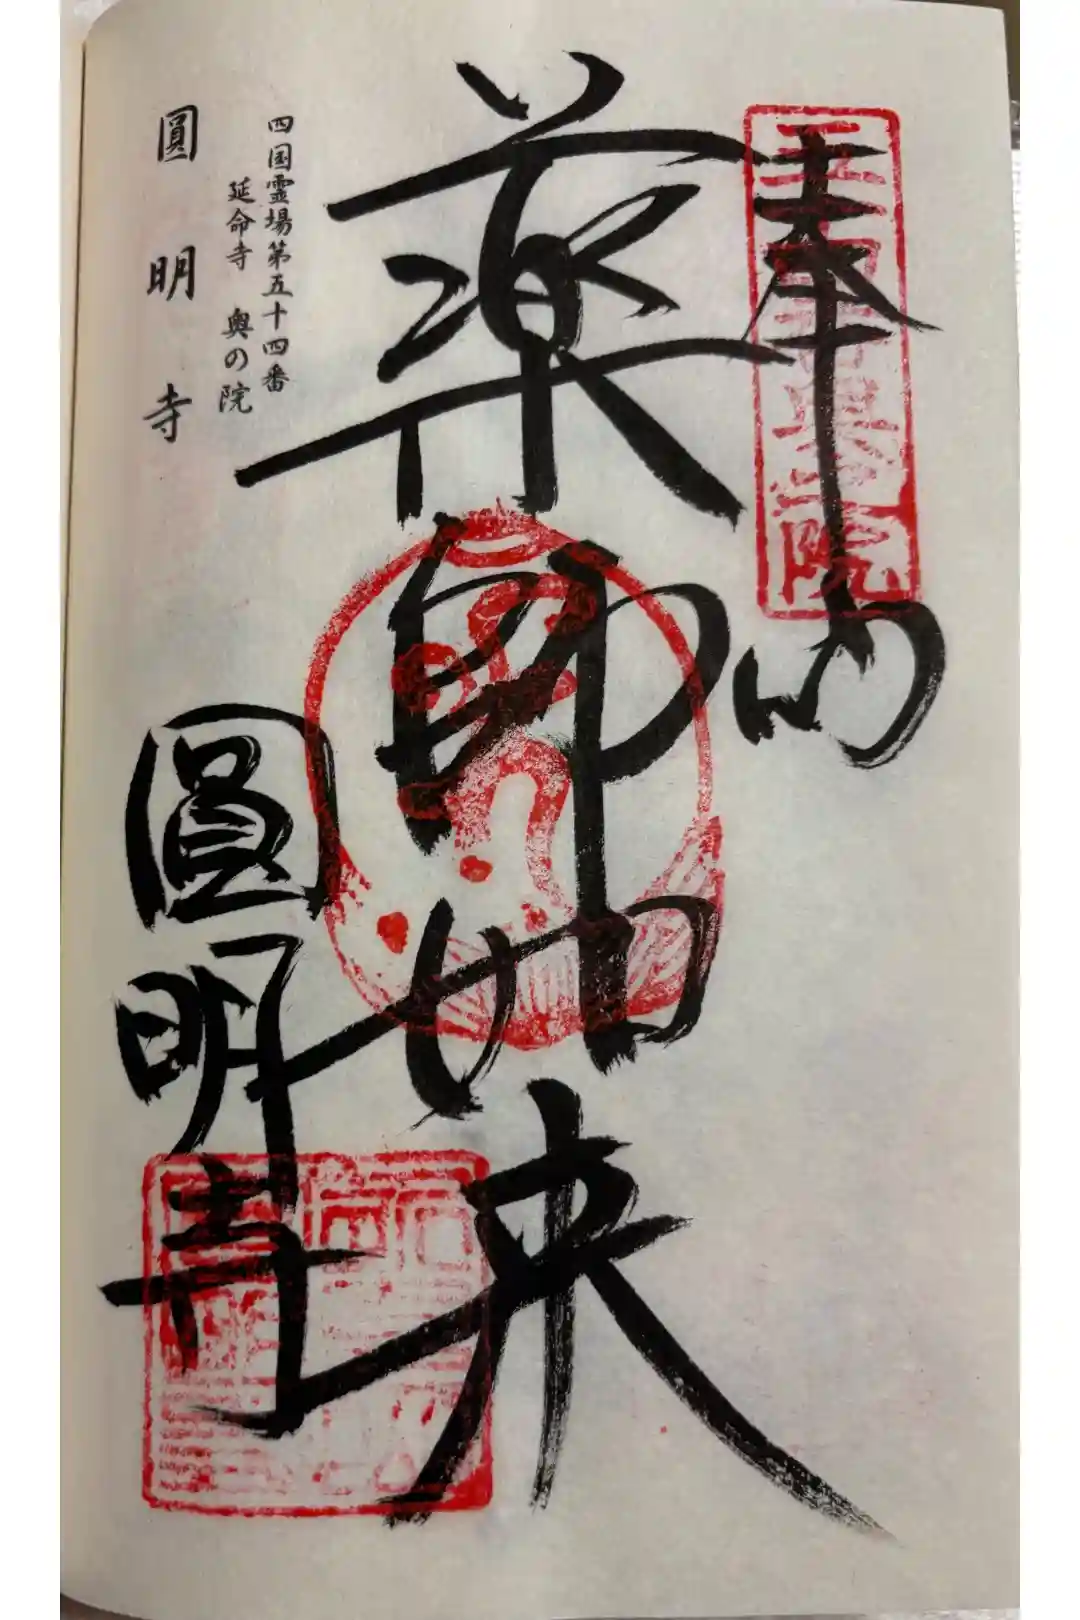 奉納
薬師如来
圓明寺
四国霊場第五十四番
延命寺 奥の院
圓明寺